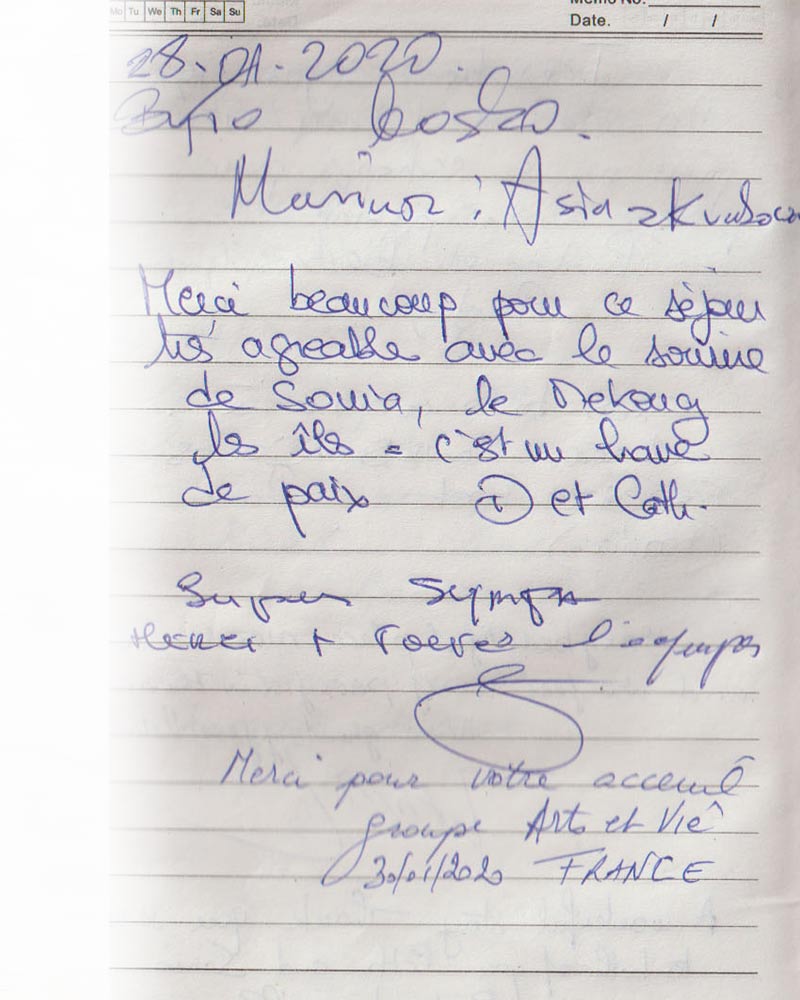 Mo Tu We Th Fr Sa Su
Memo No.
Date. / /
28.01.2020.
Było bosko.
Mariusz i Asia z Krakowa
Merci beaucoup pour ce séjour
très agréable avec le sourire
de Sonia, le Mekong
les îles = c'est un havre
de paix et Cath.
Super sympa
Merci + toutes l'équipe
Merci pour votre acceuil
groupe Arts et Vie
30/01/2020 FRANCE